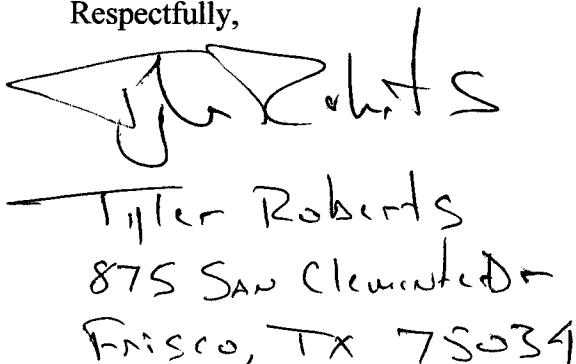 Respectfully,
Tyler Roberts
Tyler Roberts
875 San Clemente Dr
Frisco, TX 75034